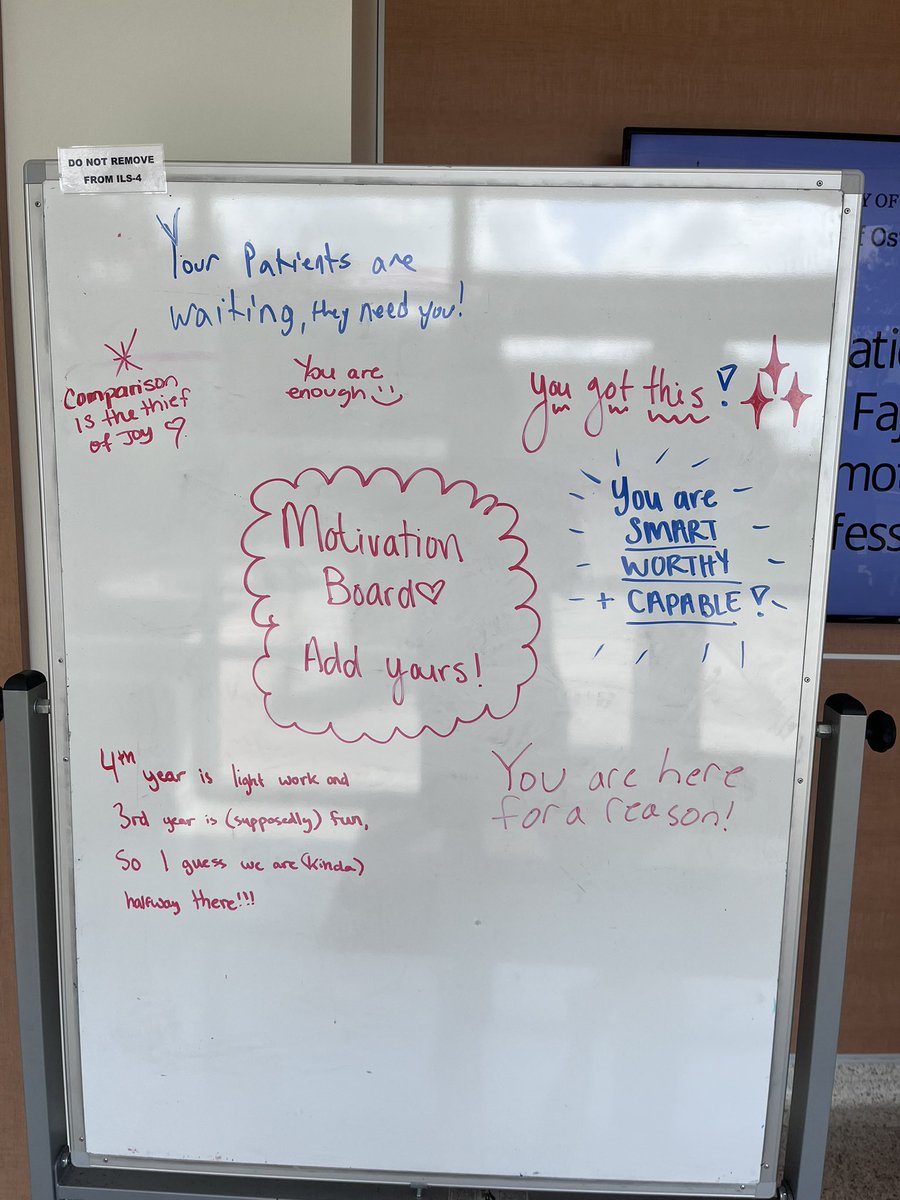 DO NOT REMOVE
FROM ILS-4
Your Patients are
waiting, they need you!
Comparison
is the thief
of Joy
You are
enough
you got this!
You are
SMART
WORTHY
+ CAPABLE!
Motivation
Board
Add yours!
4th year is light work and
3rd year is (supposedly) fun,
So I guess we are (kinda)
halfway there!!!
You are here
for a reason!
Y OF
f Os
atio
Fa
mot
fess